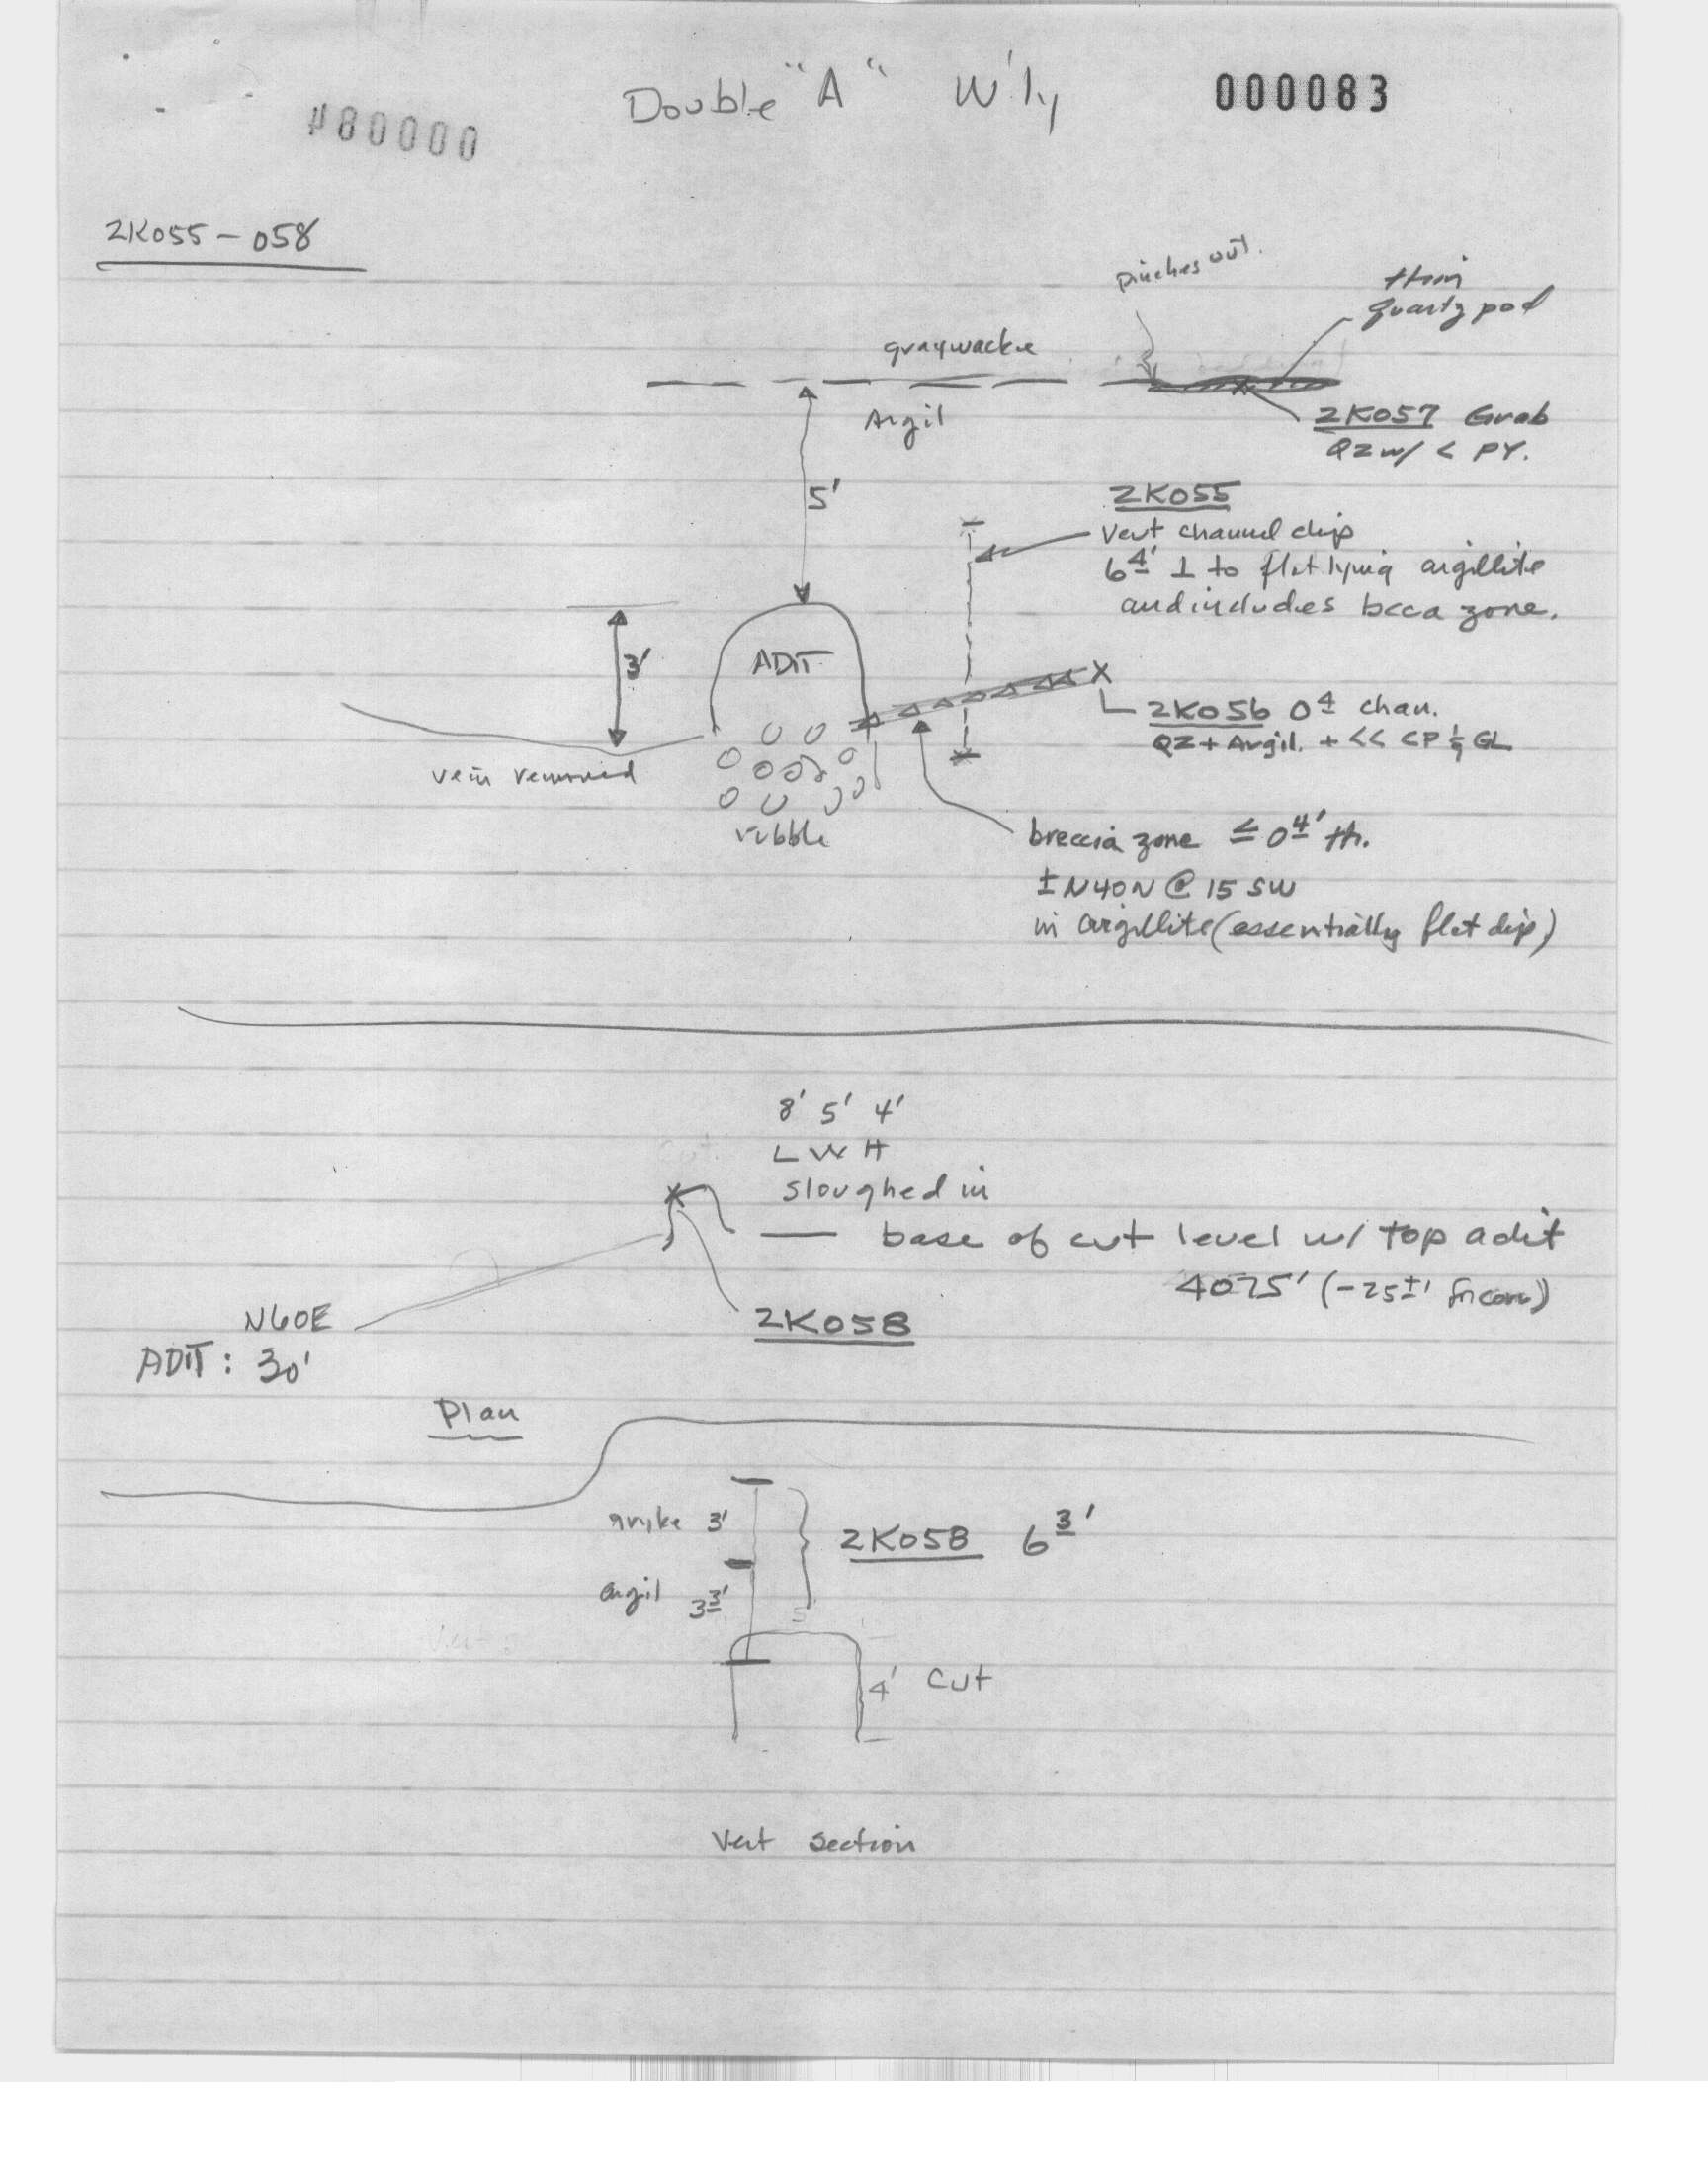 Double "A" W'ly
000083
#80000
2K055 - 058
pinches out.
thin
quartz pod
graywacke
Argil
2K057 Grab
QZ w/ < PY.
5'
2K055
Vert channel chip
6 4' ⊥ to flat lying argillite
and includes bcca zone.
3'
ADIT
2K056 0 4 chan.
QZ + Argil. + << CP & GL
vein removed
rubble
breccia zone ≤ 0 4' th.
± N40N @ 15 SW
in argillite (essentially flat dip)
8' 5' 4'
L W H
Cut
sloughed in
— base of cut level w/ top adit
4075' (-25±'
2K058
N60E
ADIT: 30'
Plan
3'
2K058 6 3'
argil 3 3'
5'
4' Cut
Vert section